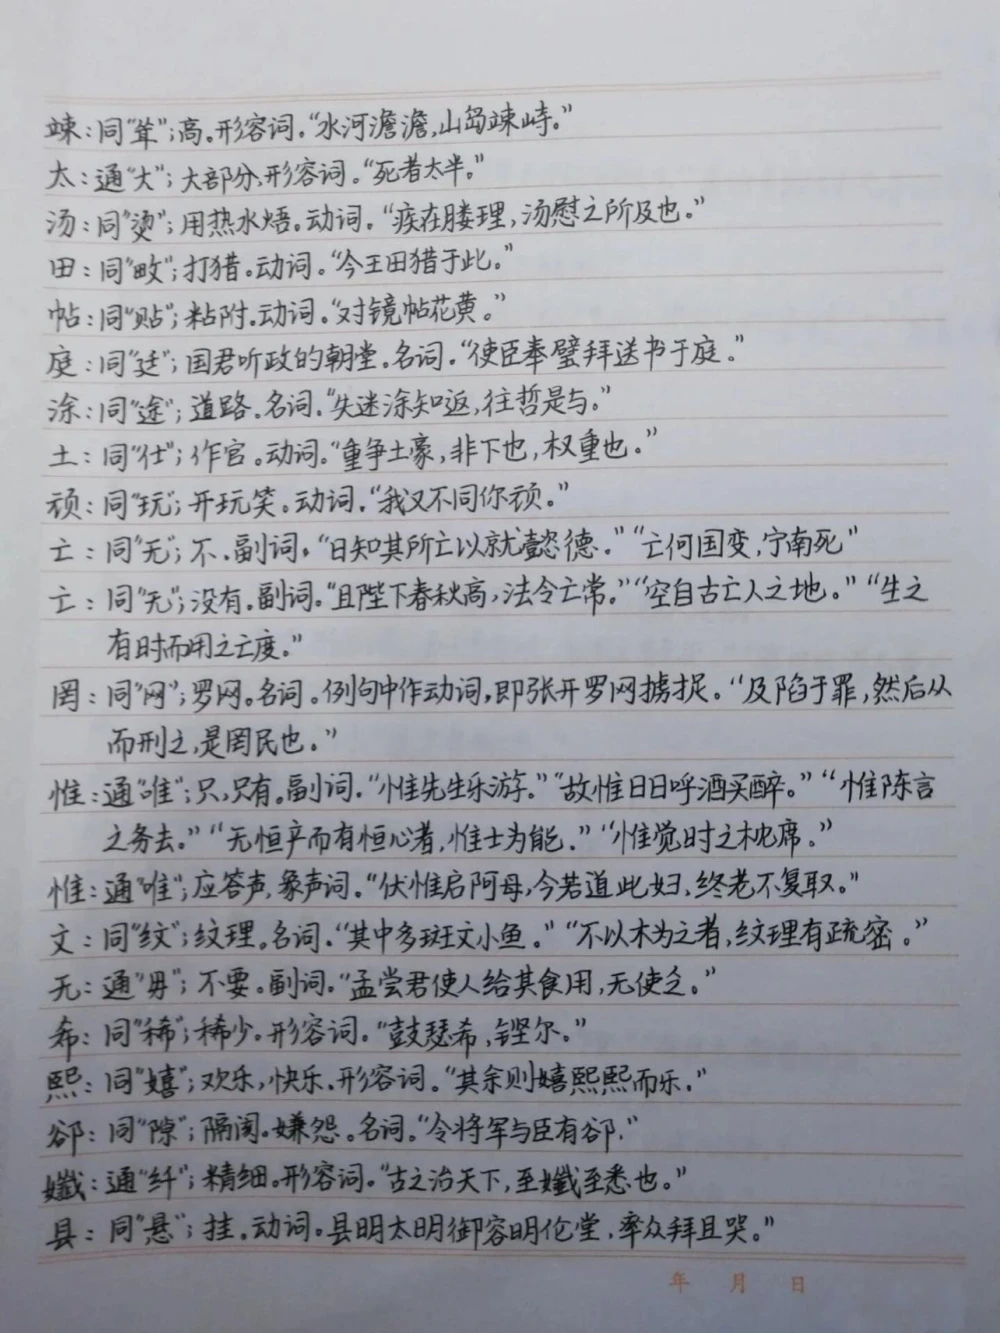 竦：同“耸”；高。形容词。“水河澹澹，山岛竦峙。”
太：通“大”；大部分，形容词。“死者太半。”
汤：同“烫”；用热水焐。动词。“疾在腠理，汤慰之所及也。”
田：同“畋”；打猎。动词。“今王田猎于此。”
帖：同“贴”；粘附。动词。“对镜帖花黄。”
庭：同“廷”；国君听政的朝堂。名词。“使臣奉璧拜送书于庭。”
涂：同“途”；道路。名词。“失迷涂知返，往哲是与。”
土：同“仕”；作官。动词。“重争土豪，非下也，权重也。”
顽：同“玩”；开玩笑。动词。“我又不同你顽。”
亡：同“无”；不。副词。“日知其所亡以就懿德。”“亡何国变，宁南死”
亡：同“无”；没有。副词。“且陛下春秋高，法令亡常。”“空自古亡人之地。”“生之
有时而用之亡度。”
罔：同“网”；罗网。名词。例句中作动词，即张开罗网掳捉。“及陷于罪，然后从
而刑之，是罔民也。”
惟：通“唯”；只，只有。副词。“惟先生乐游。”“故惟日日呼酒买醉。”“惟陈言
之务去。”“无恒产而有恒心者，惟士为能。”“惟觉时之枕席。”
惟：通“唯”；应答声，象声词。“伏惟启阿母，今若遣此妇，终老不复取。”
文：同“纹”；纹理。名词。“其中多斑文小鱼。”“不以木为之者，纹理有疏密。”
无：通“毋”；不要。副词。“孟尝君使人给其食用，无使乏。”
希：同“稀”；稀少。形容词。“鼓瑟希，铿尔。”
熙：同“嬉”；欢乐，快乐。形容词。“其余则嬉熙熙而乐。”
郤：同“隙”；隔阂。嫌怨。名词。“令将军与臣有郤。”
孅：通“纤”；精细。形容词。“古之治天下，至孅至悉也。”
县：同“悬”；挂。动词。县明太明御容明伦堂，率众拜且哭。”
年 月 日